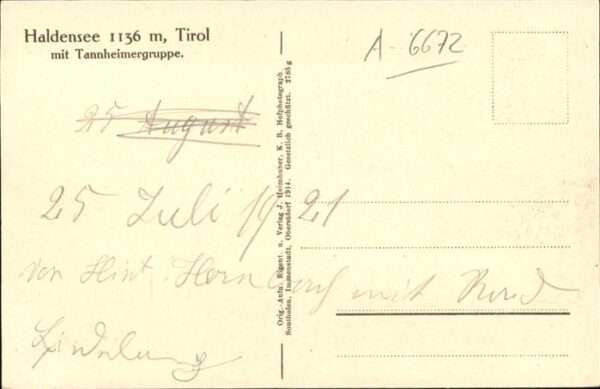 Haldensee 1136 m, Tirol
mit Tannheimergruppe.
A-6672
25 August
25 Juli 1921
von Hint. Hornbach mit
Orig.-Aufn. Eigent. u. Verlag J. Heimhuber, K. B. Hofphotograph
Sonthofen, Immenstadt, Oberstdorf 1914. Gesetzlich geschützt. 3785 g